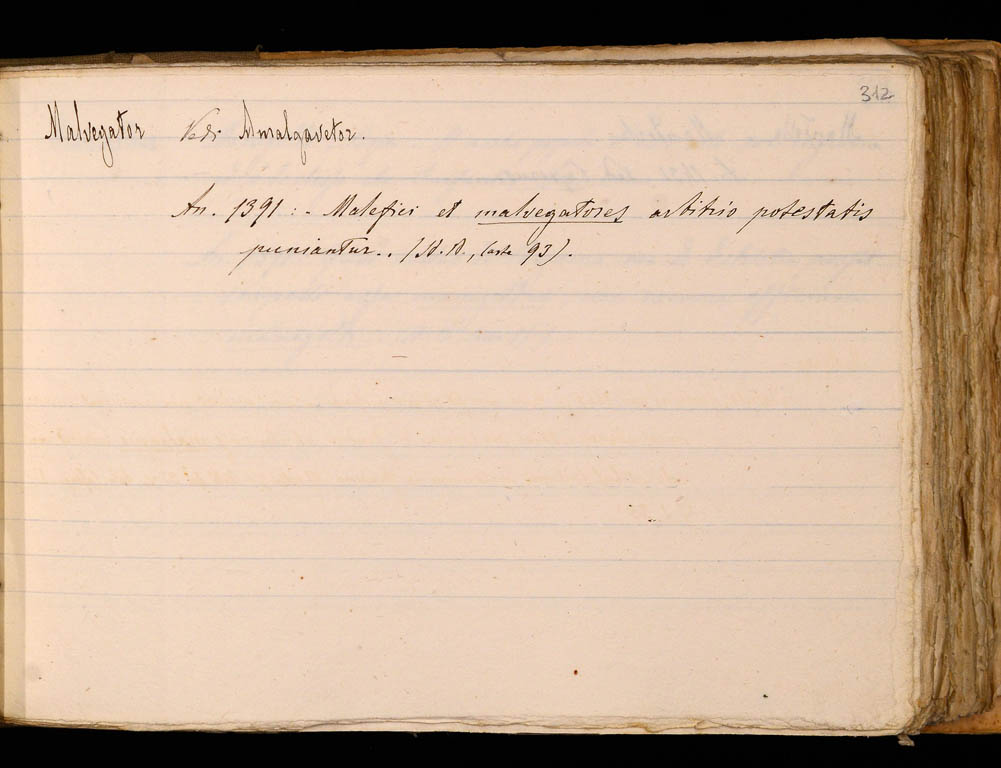 312
Malvegator Vedi Amalgavetor.
An. 1391: - Malefici et malvegatores arbitrio potestatis
puniantur.. (A.A., carte 93).